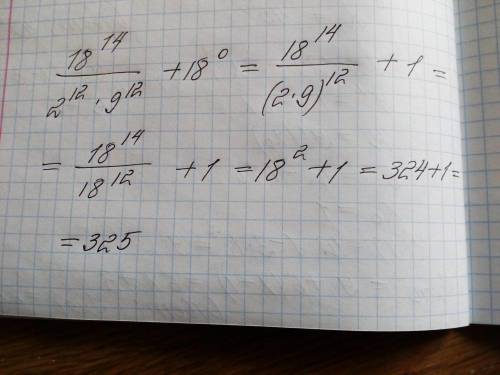 18^14 / (2^12 · 9^12) + 18^0 = 18^14 / (2·9)^12 + 1 =
= 18^14 / 18^12 + 1 = 18^2 + 1 = 324 + 1 =
= 325